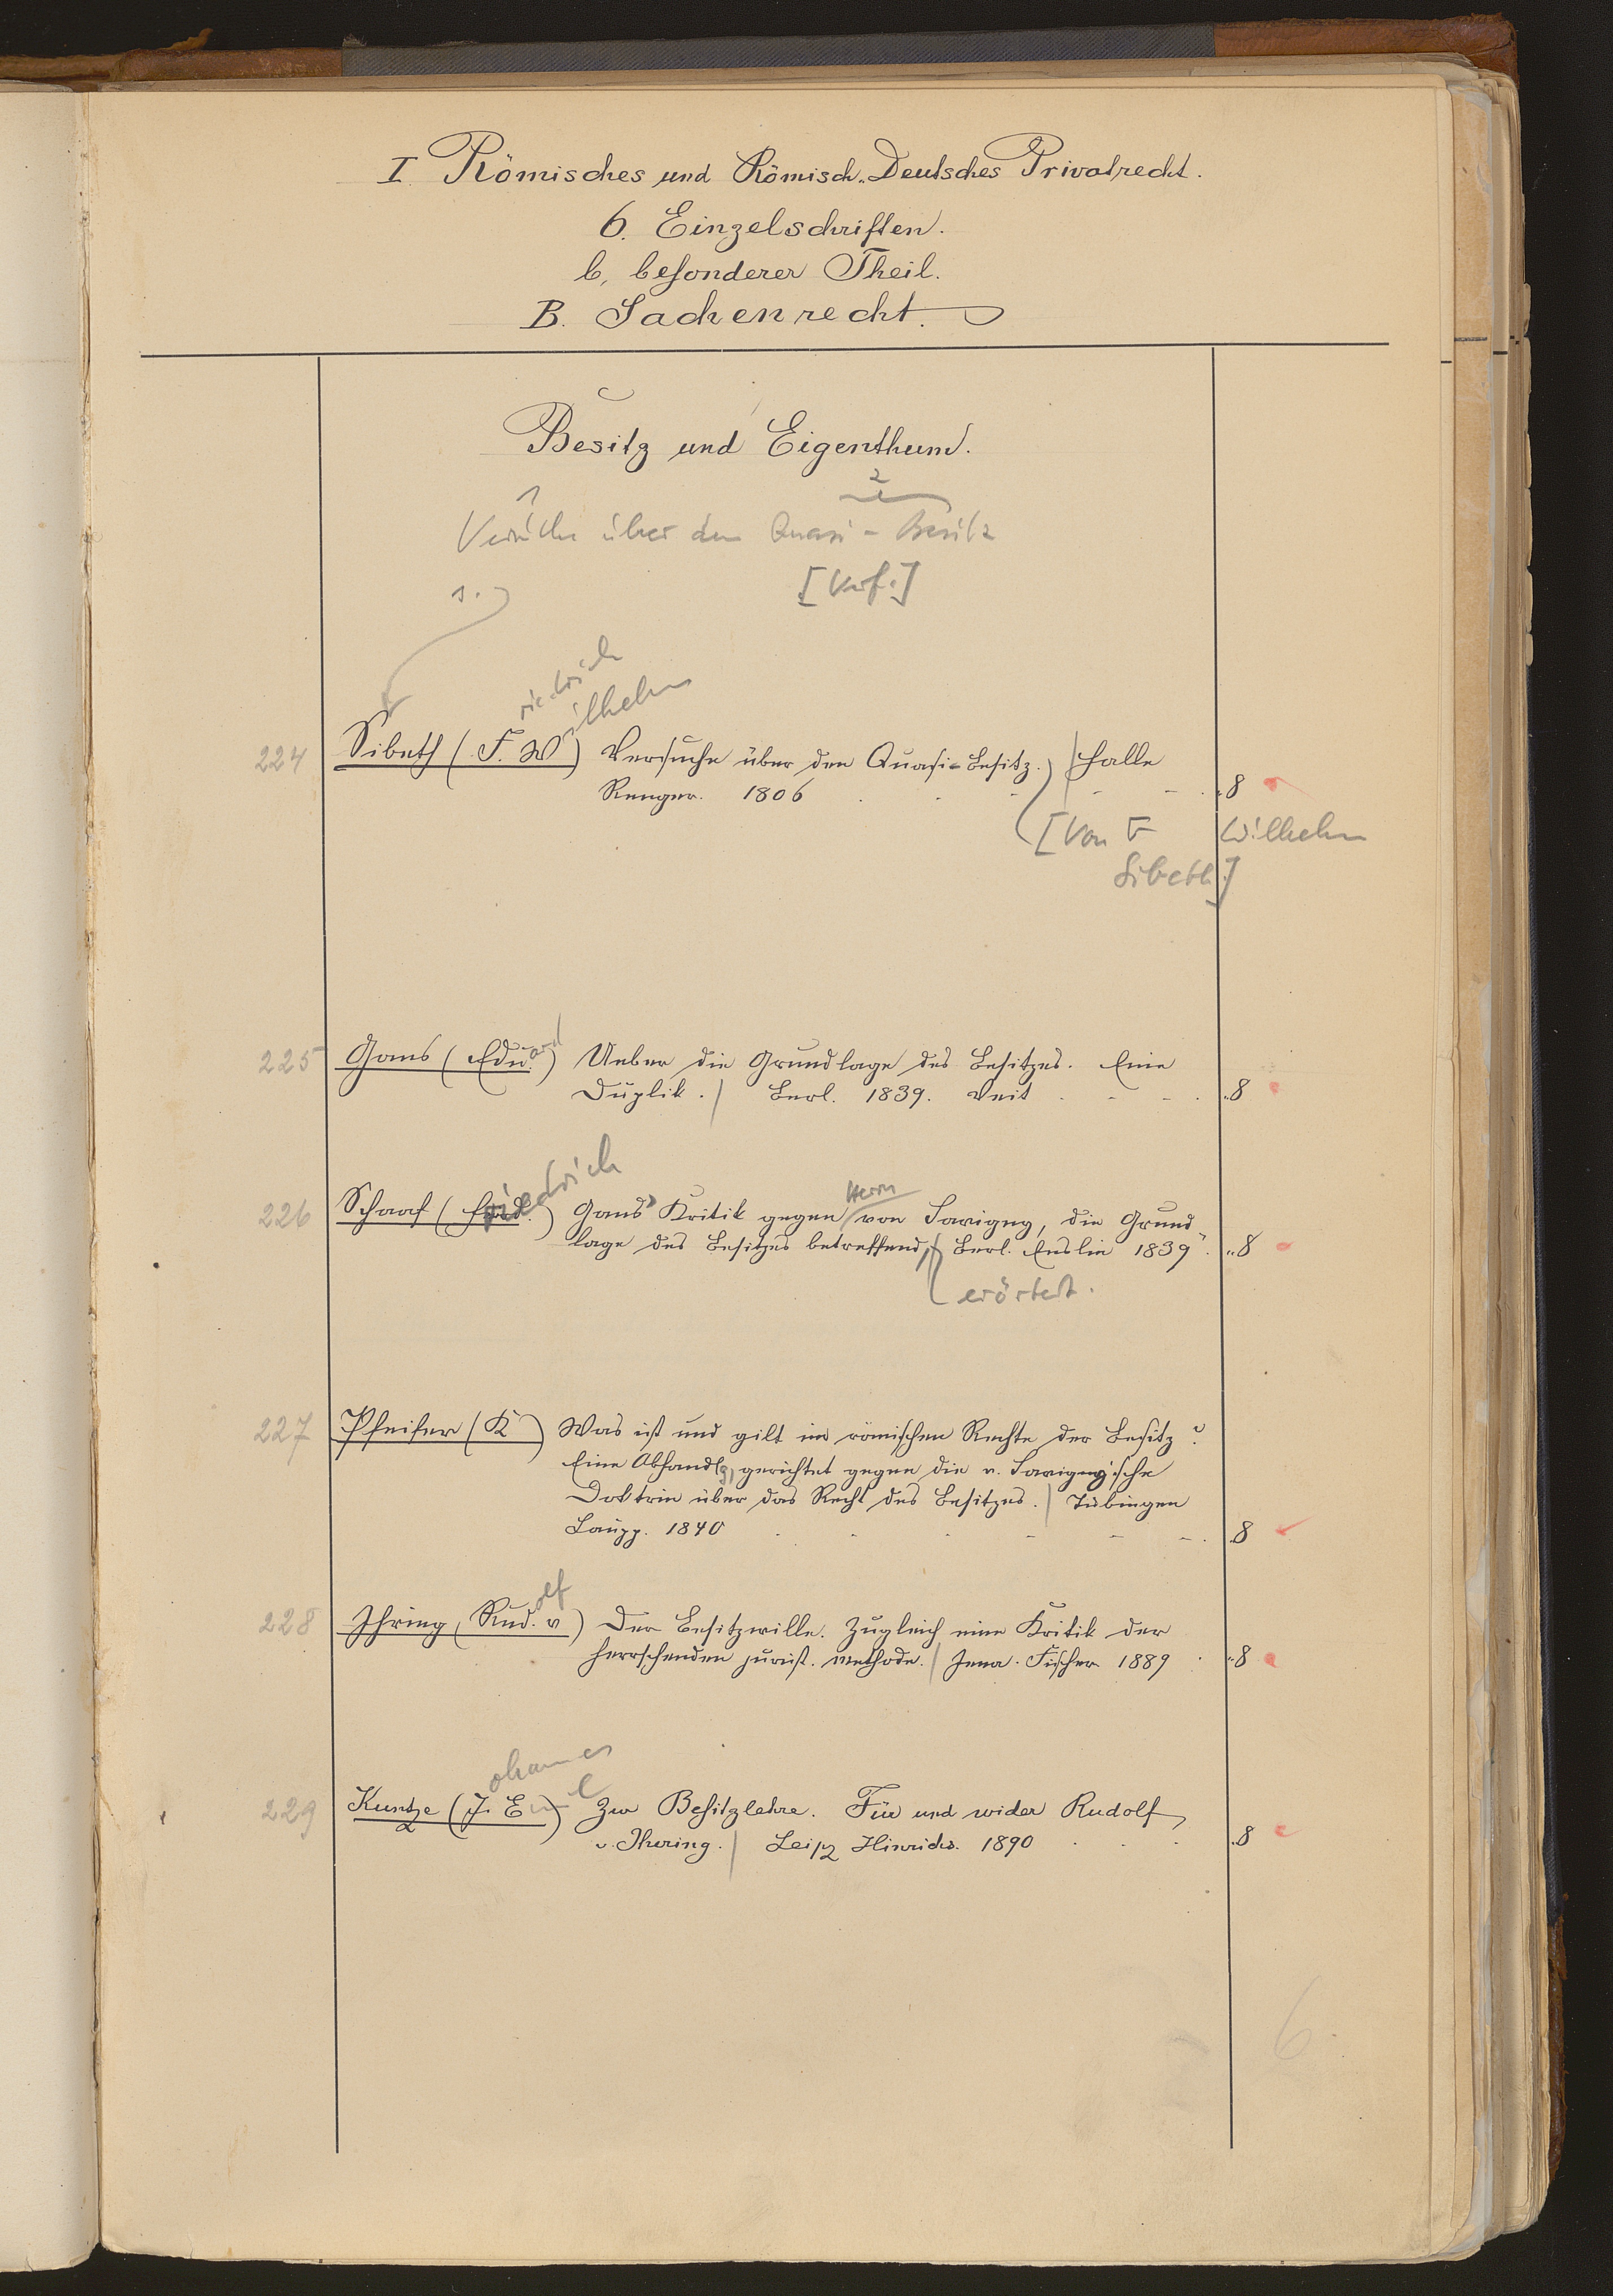 I. Römisches und Römisch-Deutsches Privatrecht.
6. Einzelschriften.
b, besonderer Theil.
B. Sachenrecht.
Besitz und Eigenthum.
1 2
Versuche über den Quasi-Besitz
1. [Verf.]
riedrich
ilhelm
224 Sibeth (F. W) Versuche über den Quasi-Besitz. Halle
Renger. 1806 8
[Von F Wilhelm
Sibeth]
225 Gans (Eduard) Ueber die Grundlage des Besitzes. Eine
Duplik. Berl. 1839. Veit 8
riedrich
Herrn
226 Schaaf ( ) Gans' Kritik gegen von Savigny, die Grund
lage des Besitzes betreffend, Berl. Enslin 1839. 8
erörtert.
227 Pfeifer (K ) Was ist und gilt im römischen Rechte der Besitz?
Eine Abhandlg, gerichtet gegen die v. Savigny'sche
Doktrin über das Recht des Besitzes. Tübingen
Laupp. 1840 8
olf
228 Jhring (Rud. v) Der Besitzwille. Zugleich eine Kritik der
herrschenden jurist. Methode. Jena. Fischer 1889 8
ohannes
229 Kuntze (J. Emil) Zur Besitzlehre. Für und wider Rudolf
v. Jhering. Leipz Hinrichs. 1890 8
6